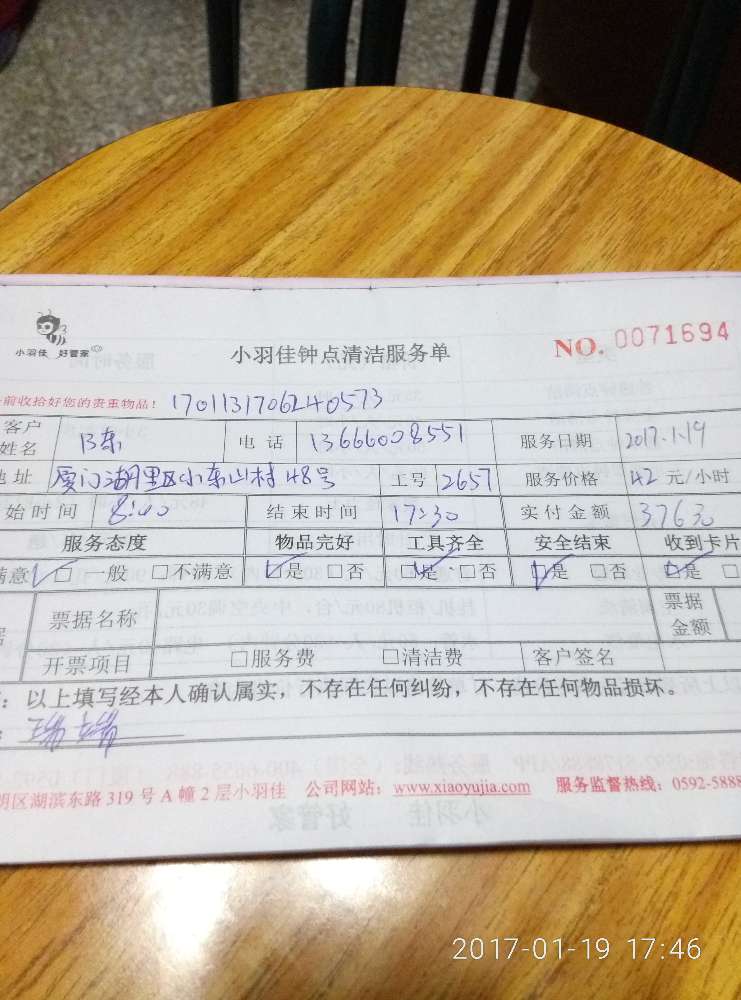 小羽佳 好管家
小羽佳钟点清洁服务单
NO. 0071694
前收拾好您的贵重物品! 170113170624 0573
客户姓名 电话 13666008551 服务日期 2017.1.19
地址 厦门湖里区小东山村48号 工号 2657 服务价格 42 元/小时
始时间 8:00 结束时间 17:30 实付金额 376.30
服务态度 物品完好 工具齐全 安全结束 收到卡片
满意 □一般 □不满意 □是 □否 □是 □否 □是 □否 □是
票据名称 票据金额
开票项目 □服务费 □清洁费 客户签名
:以上填写经本人确认属实,不存在任何纠纷,不存在任何物品损坏。
明区湖滨东路 319 号 A 幢 2 层小羽佳 公司网站:www.xiaoyujia.com 服务监督热线:0592-5888
2017-01-19 17:46